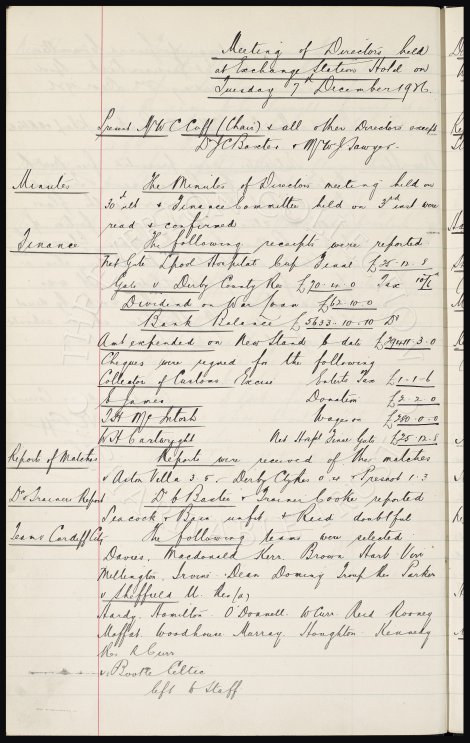 Meeting of Directors held
at Exchange Station Hotel on
Tuesday 7th December 1926.
Present Mr W C Cuff (Chair) & all other Directors except
Dr J C Baxter & Mr W J Sawyer.
Minutes The Minutes of Directors meeting held on
30th ult & Finance Committee held on 3rd inst were
read & confirmed
Finance The following receipts were reported
Net Gate Lpool Hospitals Cup £25.12.8
Gate v Derby County Res £70.11.0 Tax 10/6d
Dividend on War Loan £62.10.0
Bank Balance £5633.10.10 Dr
Amt expended on New Stand to date £29411.3.0
Cheques were signed for the following
Collector of Customs Excise Enterts Tax £1.1.6
Donation £2.2.0
T.H. McIntosh Wages £280.0.0
W H Cartwright Net Gate £25.12.8
Reports of Matches Reports were received of the matches
v Aston Villa 3.5. Derby Cty Res 0.4 & Prescot 1.3
Dr & Trainer Report Dr Baxter & Trainer Cooke reported
Peacock & Bain unfit & Reid doubtful
Team v Cardiff City The following teams were selected
Davies. Macdonald Kerr. Brown Hart Virr
Millington. Irvine. Dean Dominy Troup Res Parker
v Sheffield U. Res (a)
Hardy. Hamilton. O'Donnell W Curr Reid Rooney
Moffat. Woodhouse Murray Houghton. Kennedy
Res A Curr
v Bootle Celtic
left to Staff